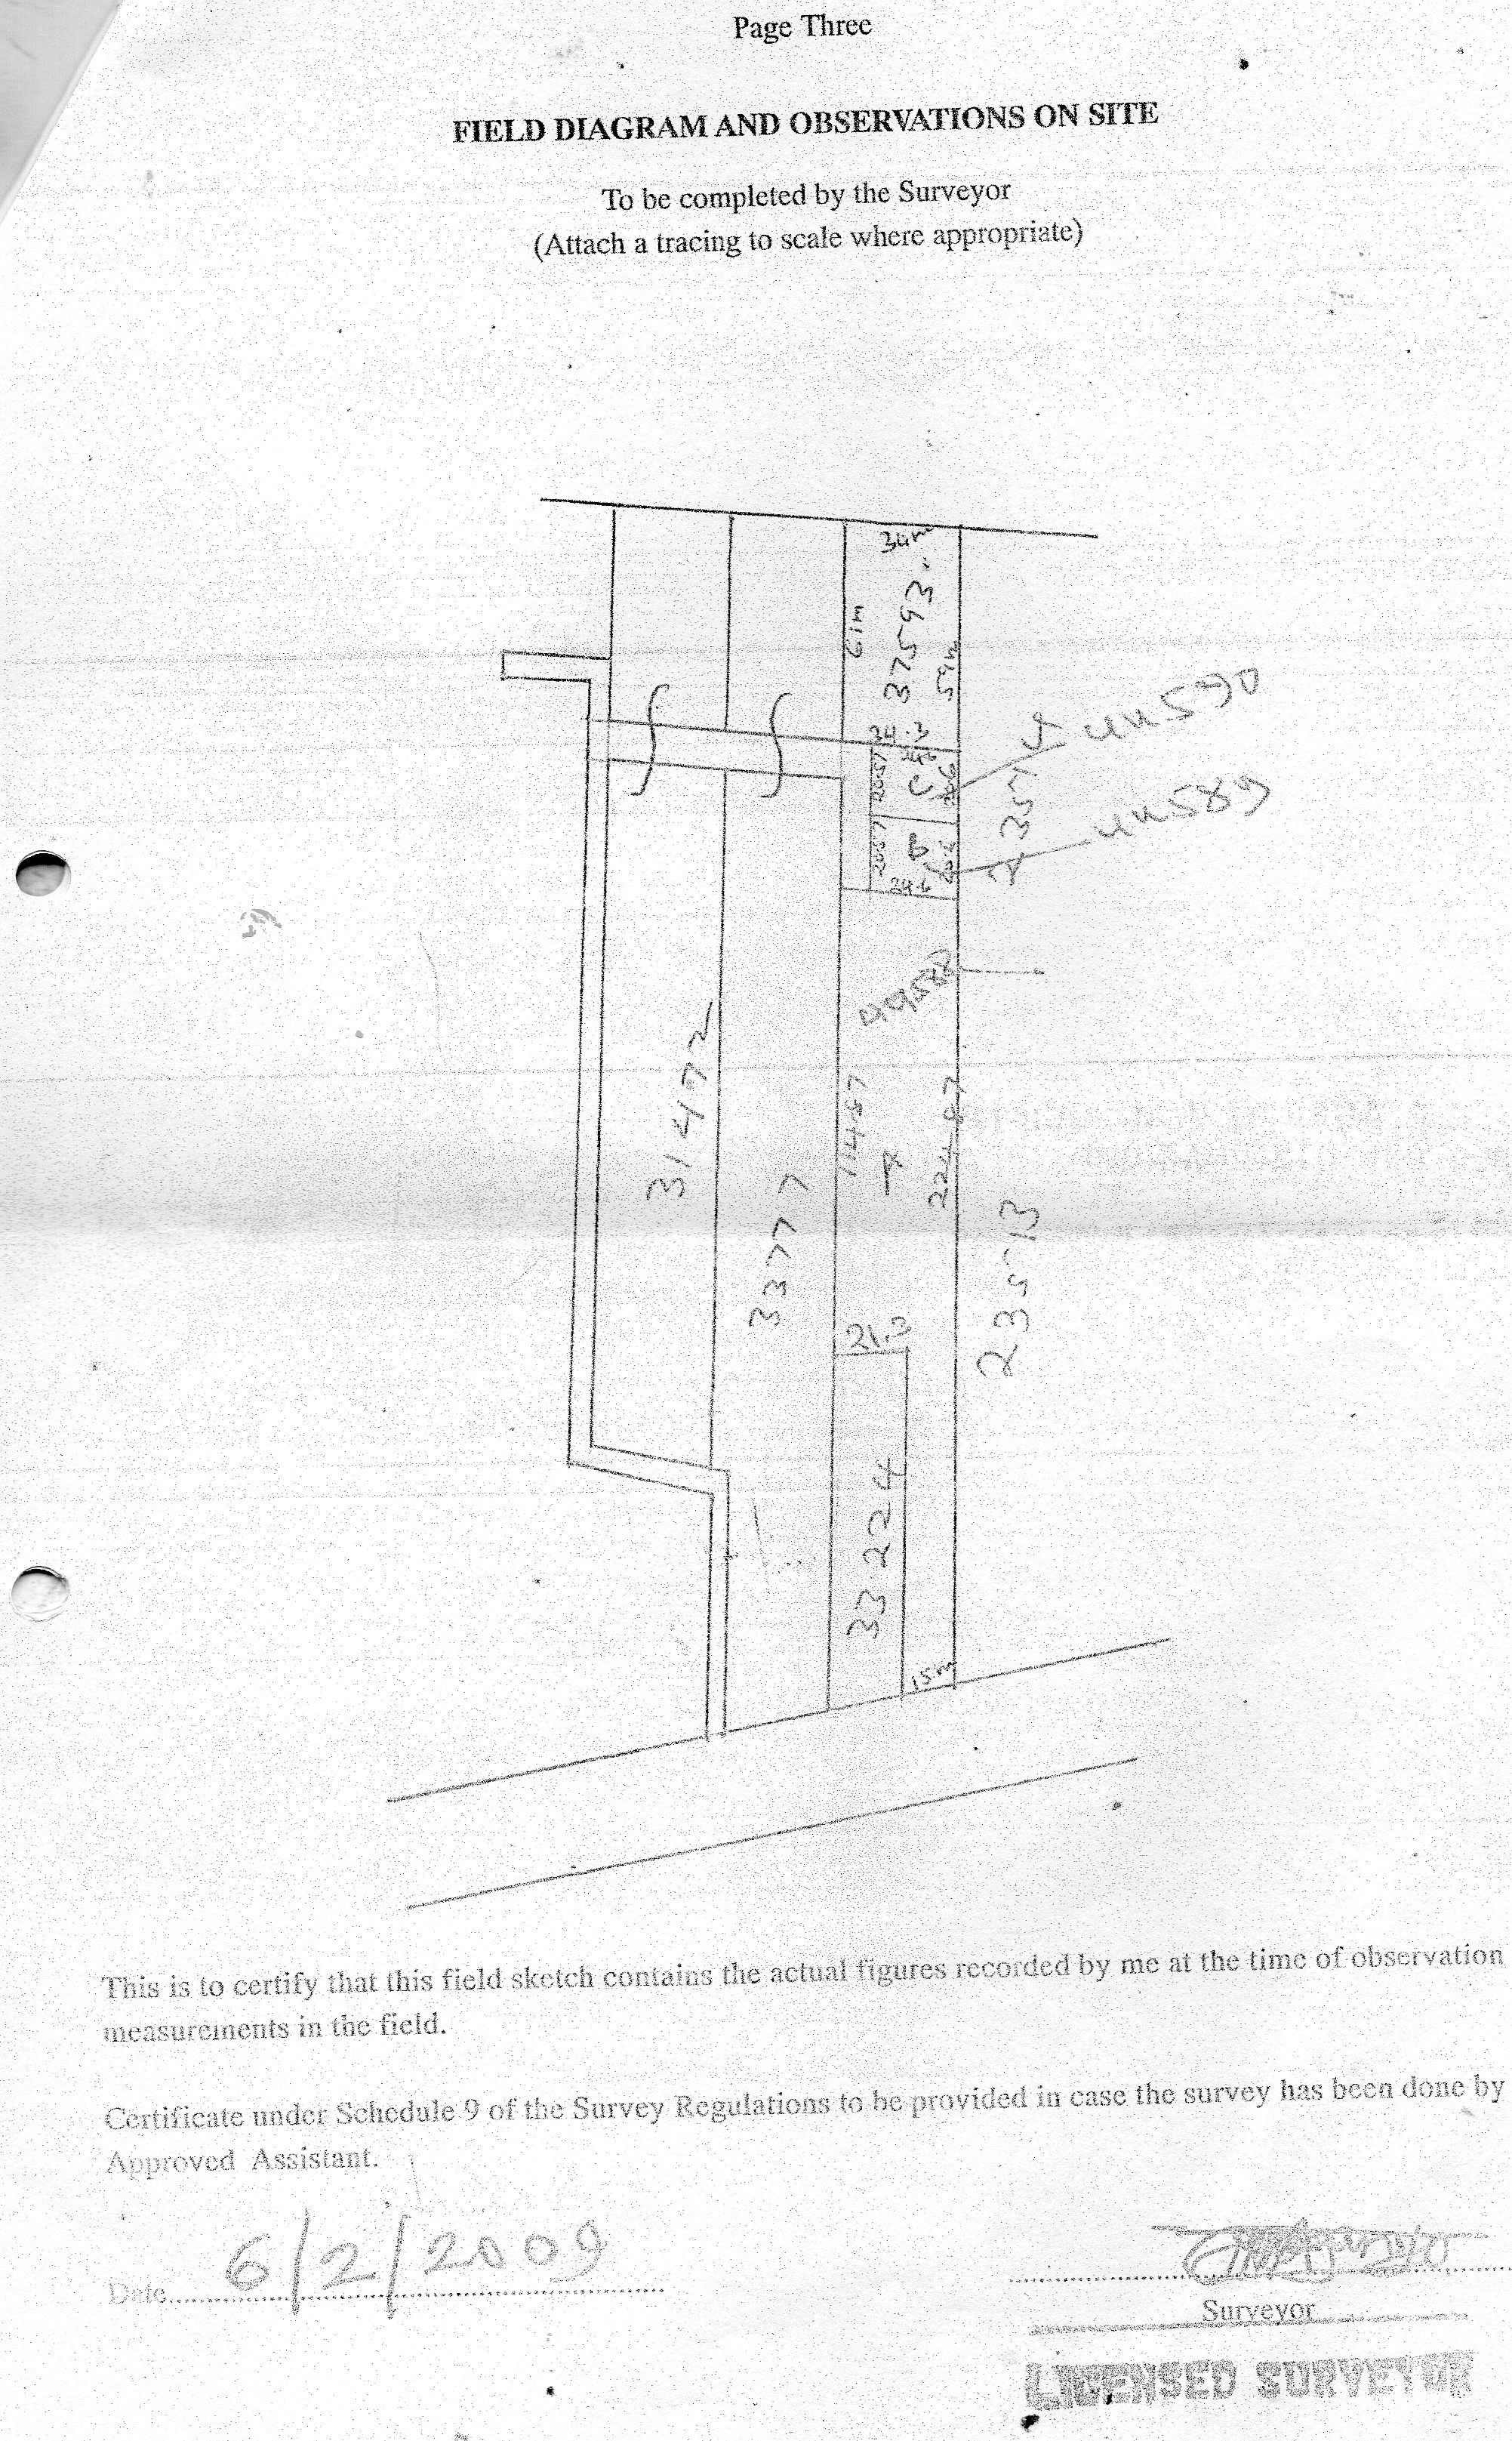 Page Three
FIELD DIAGRAM AND OBSERVATIONS ON SITE
To be completed by the Surveyor
(Attach a tracing to scale where appropriate)
34m
37593
61m
59m
34.3
24.6
20.57
C
44590
20.57
B
24.6
44589
44588
31472
114.57
A
3377 7
21.3
33224
15m
This is to certify that this field sketch contains the actual figures recorded by me at the time of observation
measurements in the field.
Certificate under Schedule 9 of the Survey Regulations to be provided in case the survey has been done by
Approved Assistant.
Date 6/2/2009
Surveyor
LICENSED SURVEYOR